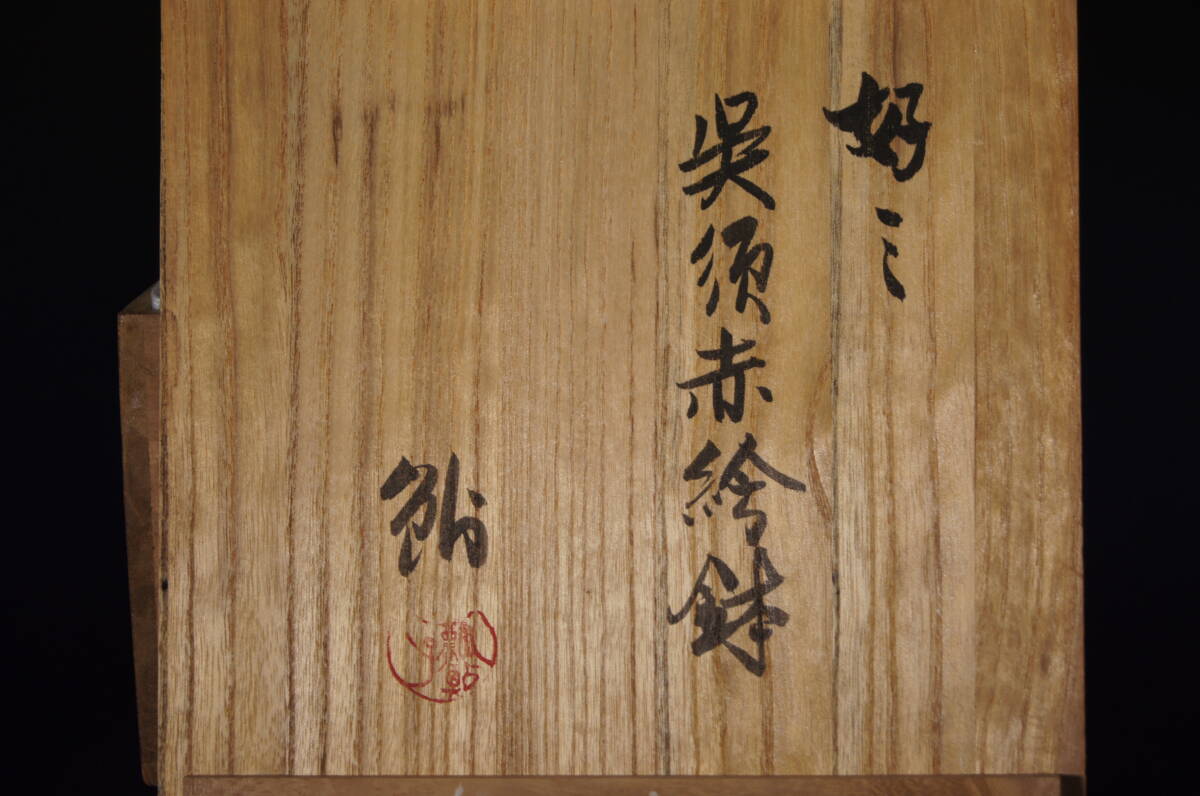 好ミ
呉須赤繪鉢